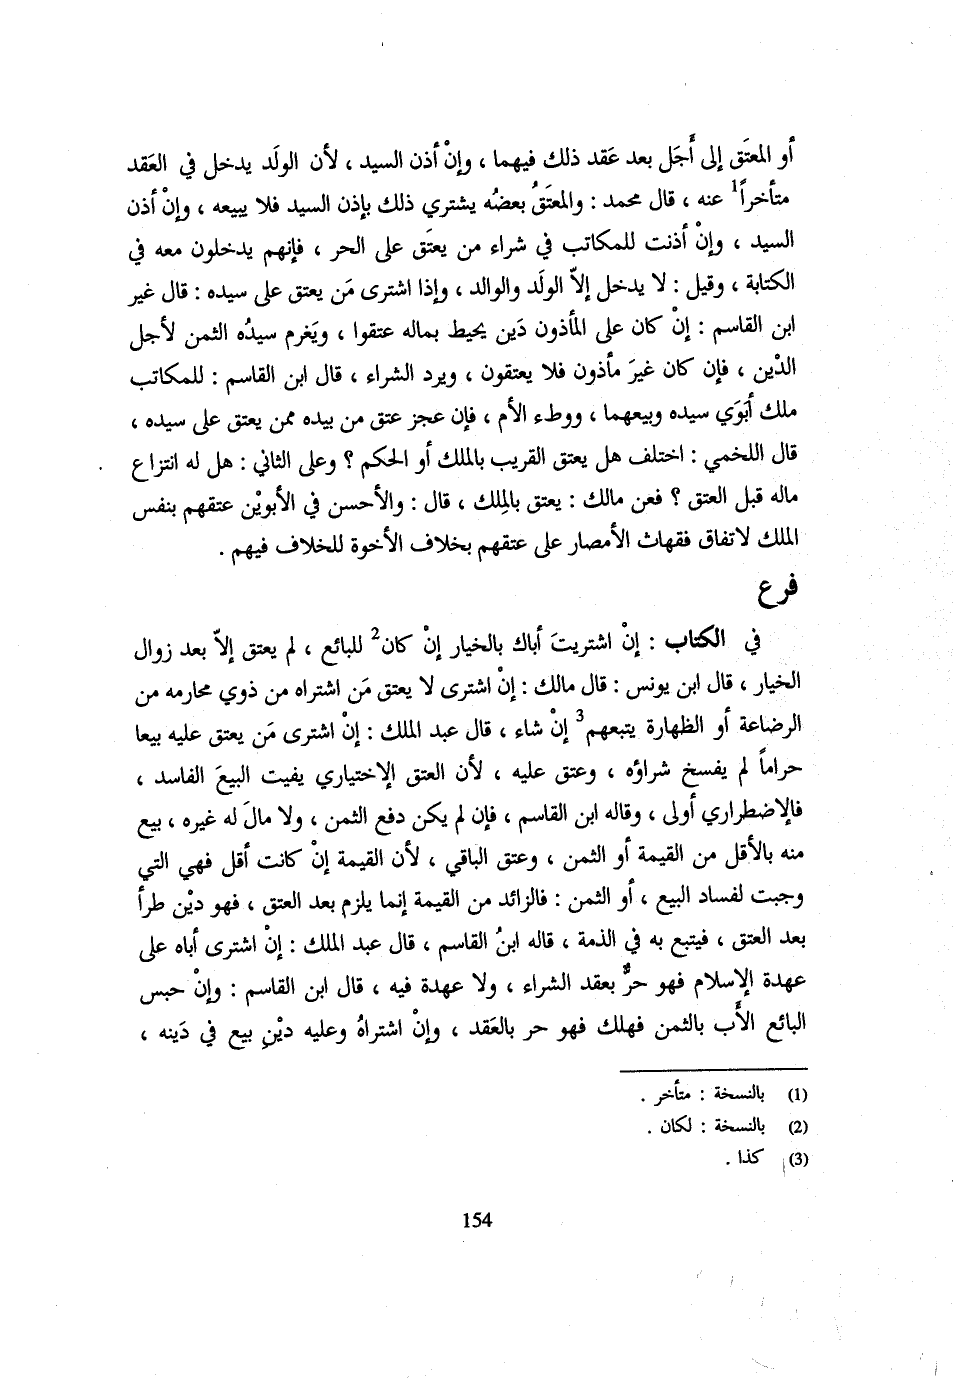 أو المعتَق إلى أَجَل بعد عَقد ذلك فيهما ، وإنْ أذن السيد ، لأن الولَد يدخل في العَقد
متأخراً1 عنه ، قال محمد : والمعتَقُ بعضُه يشتري ذلك بإذن السيد فلا يبيعه ، وإنْ أذن
السيد ، وإنْ أذنت للمكاتب في شراء من يعتَق على الحر ، فإنهم يدخلون معه في
الكتابة ، وقيل : لا يدخل إلاّ الولَد والوالد ، وإذا اشترى مَن يعتق على سيده : قال غير
ابن القاسم : إنْ كان على المأذون دَين يحيط بماله عتقوا ، ويَغرم سيدُه الثمن لأجل
الدْين ، فإن كان غيرَ مأذون فلا يعتقون ، ويرد الشراء ، قال ابن القاسم : للمكاتب
ملك أَبَوَي سيده وبيعهما ، ووطء الأم ، فإن عجز عتق من بيده ممن يعتق على سيده ،
قال اللخمي : اختلف هل يعتق القريب بالملك أو الحكم ؟ وعلى الثاني : هل له انتزاع
ماله قبل العتق ؟ فعن مالك : يعتق بالمِلك ، قال : والأحسن في الأبويْن عتقهم بنفس
الملك لاتفاق فقهاث الأمصار على عتقهم بخلاف الأخوة للخلاف فيهم .
فرع
في الكتاب : إنْ اشتريتَ أباك بالخيار إنْ كان2 للبائع ، لم يعتق إلاّ بعد زوال
الخيار ، قال ابن يونس : قال مالك : إنْ اشترى لا يعتق مَن اشتراه من ذوي محارمه من
الرضاعة أو الظهارة يتبعهم3 إنْ شاء ، قال عبد الملك : إنْ اشترى مَن يعتق عليه بيعا
حراماً لم يفسخ شراؤه ، وعتق عليه ، لأن العتق الإختياري يفيت البيعَ الفاسد ،
فالإضطراري أولى ، وقاله ابن القاسم ، فإن لم يكن دفع الثمن ، ولا مالَ له غيره ، بيع
منه بالأقل من القيمة أو الثمن ، وعتق الباقي ، لأن القيمة إنْ كانت أقل فهي التي
وجبت لفساد البيع ، أو الثمن : فالزائد من القيمة إنما يلزم بعد العتق ، فهو ديْن طرأ
بعد العتق ، فيتبع به في الذمة ، قاله ابنُ القاسم ، قال عبد الملك : إنْ اشترى أباه على
عهدة الإسلام فهو حرٌّ بعقد الشراء ، ولا عهدة فيه ، قال ابن القاسم : وإنْ حبس
البائع الأَب بالثمن فهلك فهو حر بالعَقد ، وإنْ اشتراهُ وعليه ديْنٍ بيع في دَينه ،
(1) بالنسخة : متأخر .
(2) بالنسخة : لكان .
(3) كذا .
154